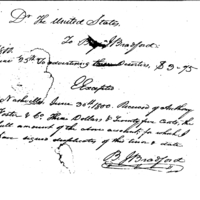 Dr The United States.
To Benj J Bradford.
1800.
June 25th To advertising three Quarters, $3-75
Excepted
Nashville June 30th 1800. Received of Anthony
Foster & Co Three Dollars & Seventy five Cents, the
full amount of the above account, for which I
have signed duplicates of this tenor & date
B J Bradford